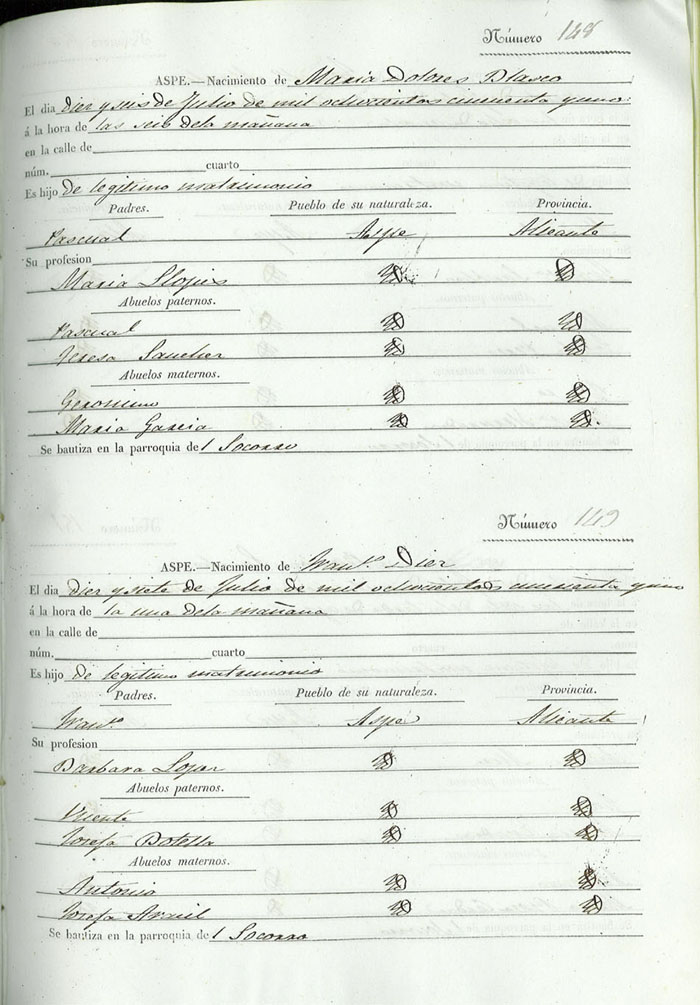 Número 148
ASPE.—Nacimiento de Maria Dolores Blasco
El dia diez y seis de Julio de mil ochocientos cincuenta y uno
á la hora de las seis de la mañana
en la calle de
núm. cuarto
Es hijo de legitimo matrimonio
Padres. Pueblo de su naturaleza. Provincia.
Pascual Aspe Alicante
Su profesion
Maria Llopis
Abuelos paternos.
Pascual
Teresa Sanchez
Abuelos maternos.
Geronimo
Maria Garcia
Se bautiza en la parroquia del Socorro
Número 149
ASPE.—Nacimiento de Fran.co Diez
El dia diez y siete de Julio de mil ochocientos cincuenta y uno
á la hora de la una de la mañana
en la calle de
núm. cuarto
Es hijo de legitimo matrimonio
Padres. Pueblo de su naturaleza. Provincia.
Fran.co Aspe Alicante
Su profesion
Barbara Lopez
Abuelos paternos.
Vicente
Josefa Botella
Abuelos maternos.
Antonio
Josefa
Se bautiza en la parroquia del Socorro